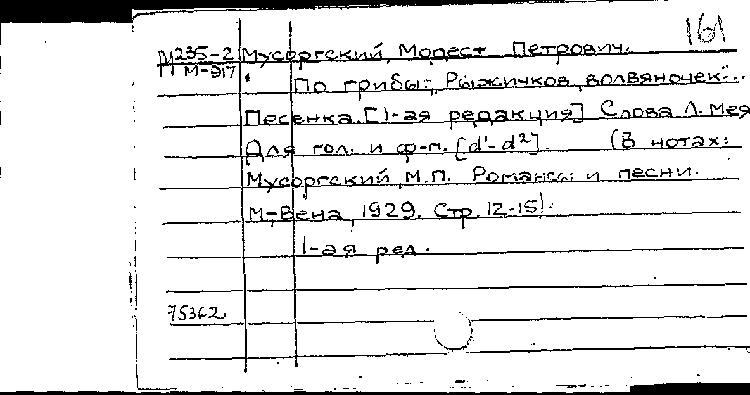 161
М235-2 Мусоргский, Модест Петрович.
М-917 По грибы: „Рыжичков, волвяночек"...
Песенка. [1-ая редакция] Слова Л. Мея
Для гол. и ф-п. [d¹-d²]. (В нотах:
Мусоргский, М.П. Романсы и песни.
М-Вена, 1929. Стр. 12-15).
1-ая ред.
75362